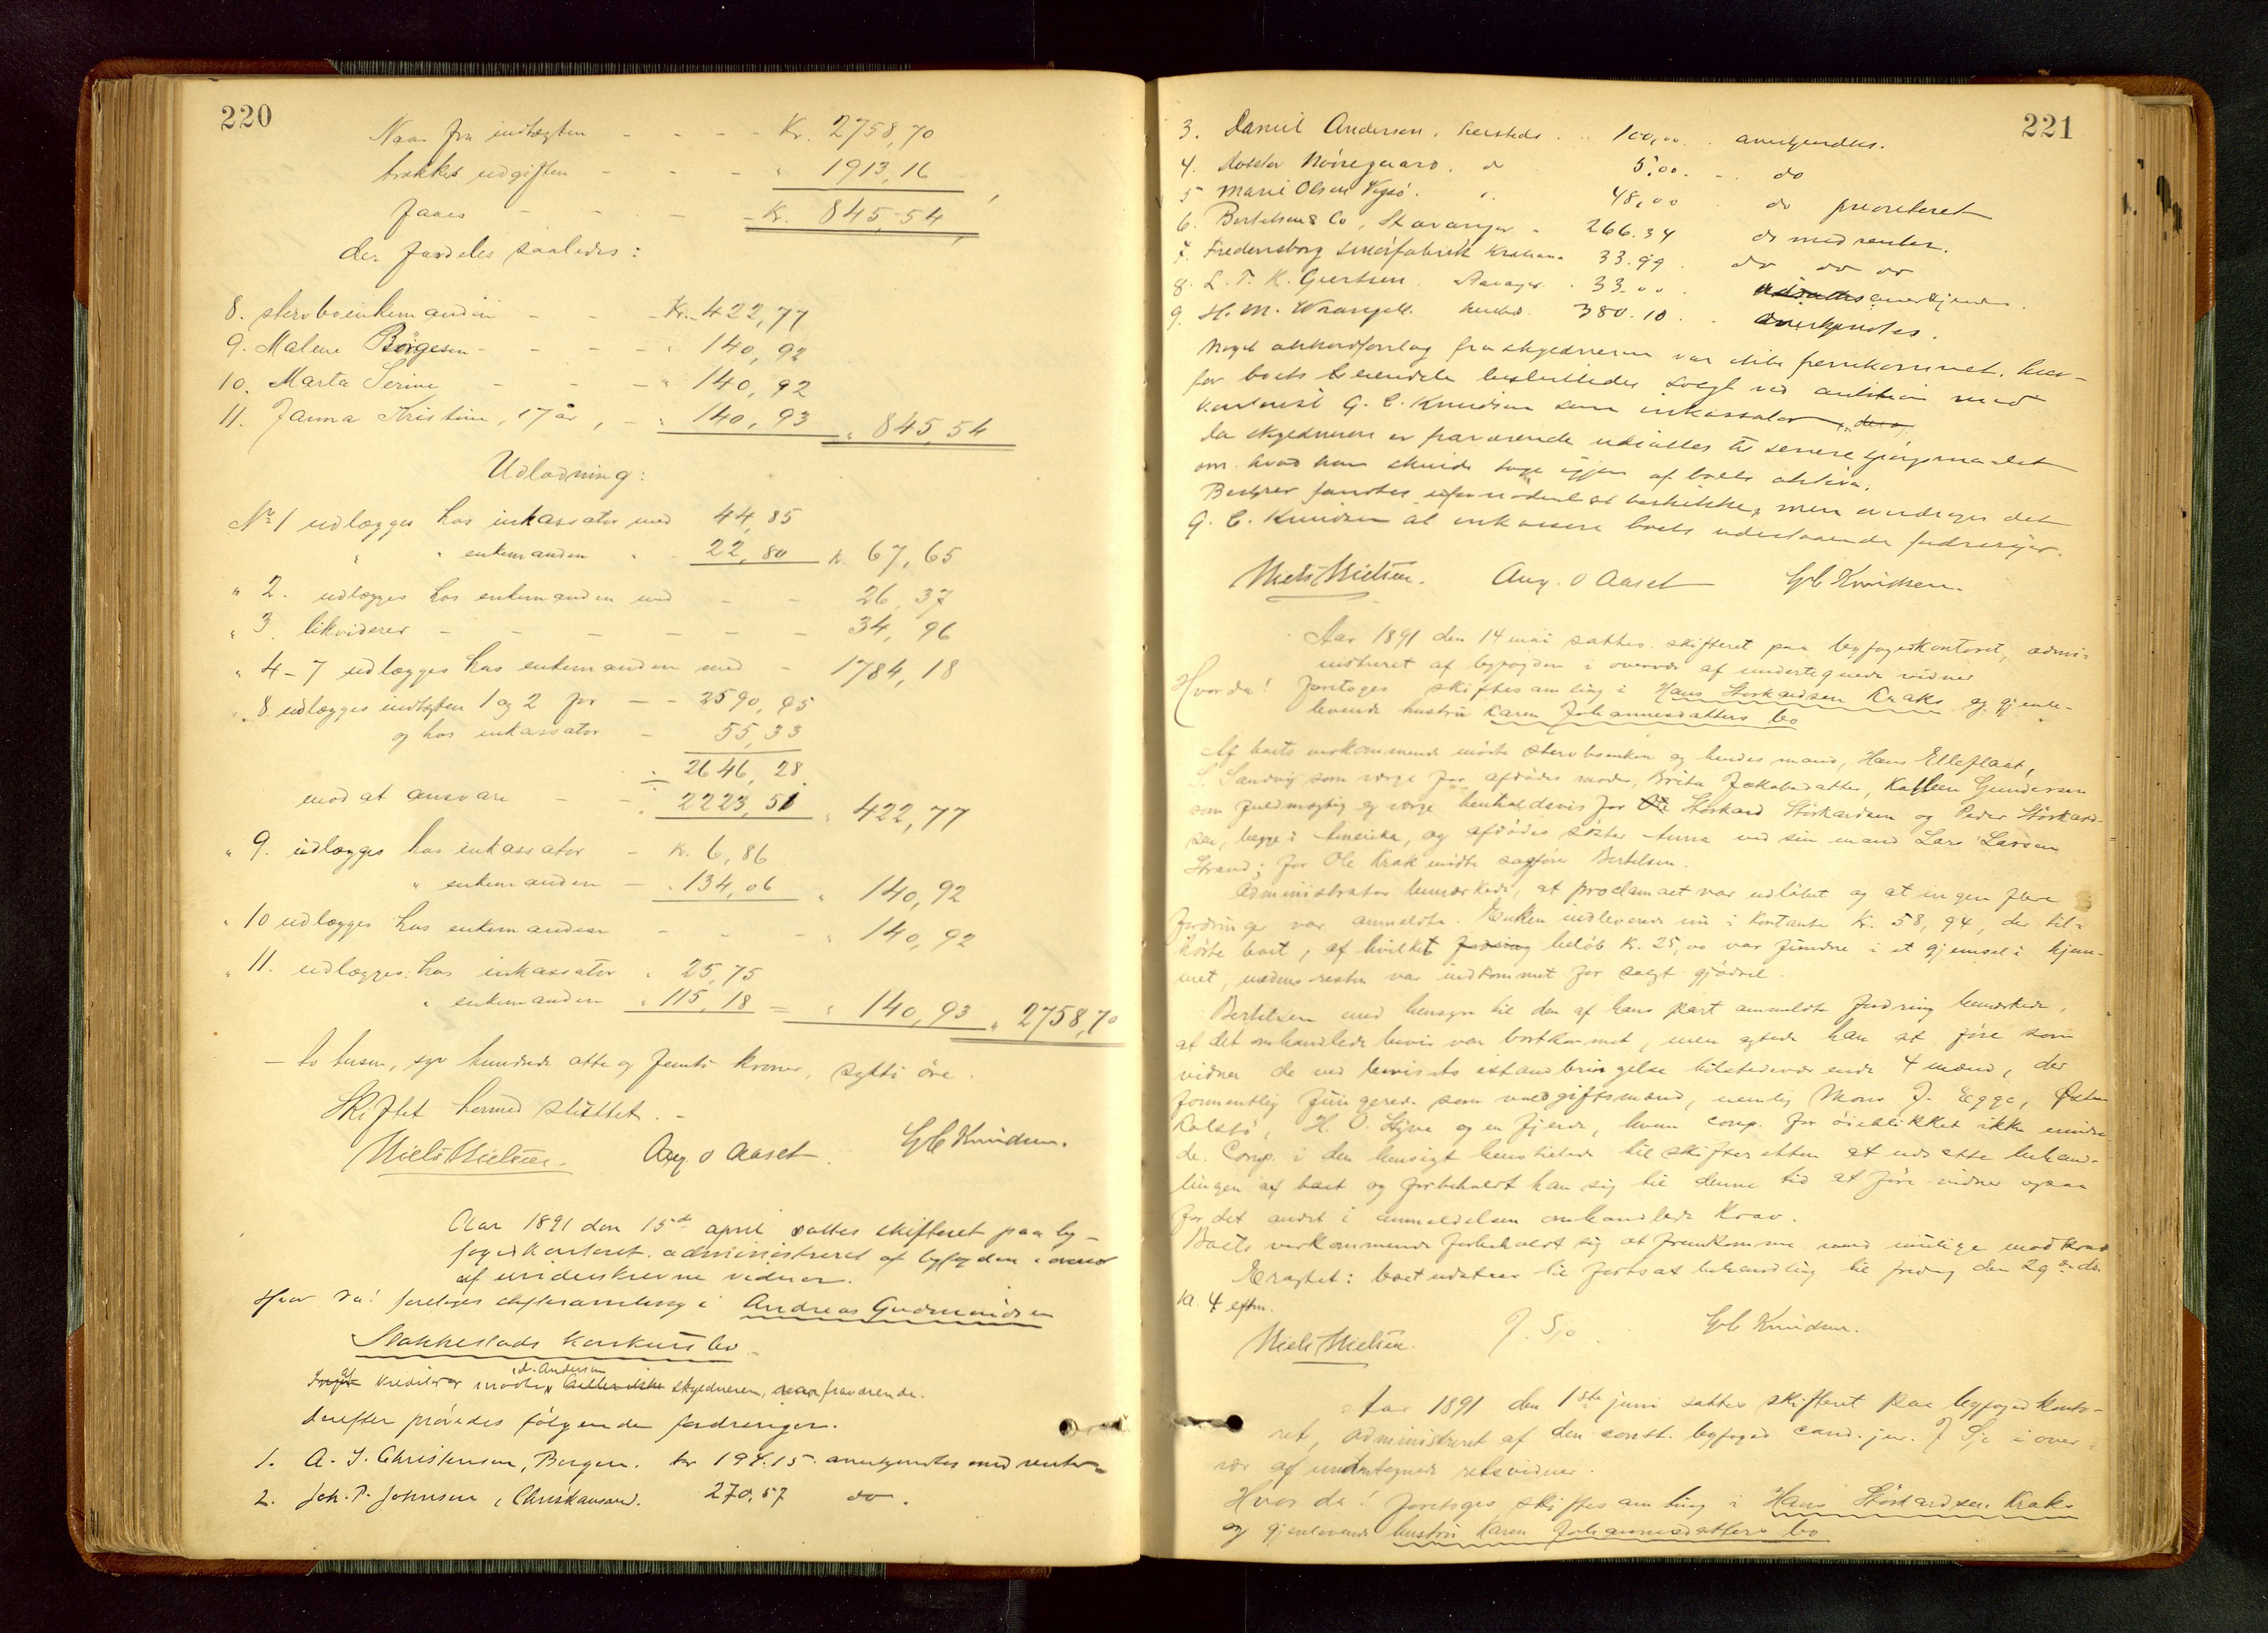 220
Naar fra indtægten - - - - Kr. 2758,70
trækkes udgiften - - - " 1913,16
faaes - - - - Kr. 845,54,
der fordeles saaledes:
8. sterboenkemanden - - - Kr. 422,77
9. Malene Börgesen - - - - " 140,92
10. Marta Serine - - - " 140,92
11. Janna Kristine, 17 år, - " 140,93 " 845,54
Udlodning:
No 1 udlægges hos inkassator med 44,85
" " enkemanden " 22,80 k. 67,65
" 2. udlægges hos enkemanden med - - 26,37
" 3. likviderer - - - - - - 34,96
" 4-7 udlægges hos enkemanden med - 1784,18
" 8 udlægges indtægten 1 og 2 for - - 2590,95
og hos inkassator - 55,33
2646,28
mod at ansvare - - 2223,51 " 422,77
" 9. udlægges hos inkassator - K. 6,86
" enkemanden - " 134,06 " 140,92
" 10 udlægges hos enkemanden - - - " 140,92
" 11. udlægges hos inkassator " 25,75
" enkemanden " 115,18 = " 140,93 " 2758,70
- to tusen, syv hundrede otte og femti kroner, sytti öre.
Skiftet hermed sluttet. -
Niels Nielsen. Aug. O Aaset. G C Knudsen.
Aar 1891 den 15de april sattes skifteret paa by-
fogedkontoret administreret af byfogden i overvær
af underskrevne vidner.
Hvor da! foretoges skiftesamling i Andreas Gudmundsen
Stakkestads konkursbo.
Af kreditorer mødte D. Andersen skyldneren, var fraværende.
Derefter prøvedes følgende fordringer.
1. A. J. Christensen, Bergen. kr 194.15 anerkjendtes med renter
2. Joh. P. Johnsen, Christiansand. 270,57 do.
221
3. Daniel Andersen, hersteds. .. 100,00 . anerkjendtes.
4. doktor Nørregaard. d 5,00. - . do
5 Marie Olsen Vegsö. " 48,00 do prioriteret
6. Bertelsen & Co, Stavanger - 266.34 do med renter.
7. Fredensborg smörfabrik Kristiania 33.99. do do do
8. L. T. K. Gjertsen. Stavanger . 33.00. anerkjendtes.
9. H. M. Wrangell. hersteds. 380.10 . anerkjendtes.
Noget akkordforslag fra skyldneren var ikke fremkommet, hvor-
for boets løsøre besluttedes solgt ved auktion med
G. C. Knudsen som inkassator
Da skyldneren er fraværende udsattes til senere spørgsmaalet
om hvad han skulde tage igjen af boets aktiva.
Bestyrer fandtes ufornødent at beskikke, men overdroges det
G. C. Knudsen at inkassere boets udestaaende fordringer.
Niels Nielsen. Aug. O Aaset G C Knudsen.
Aar 1891 den 14 mai sattes skifteret paa byfogedkontoret, admi-
nistreret af byfogden i overvær af undertegnede vidner
Hvor da! foretoges skiftesamling i Hans Storkardsen Kraks og gjenle-
vende hustru Karen Johannesdatters bo
Af boets vedkommende mödte sterboenken og hendes mand, Hans Elleflaat,
S. Sandvig som verge for afdödes moder, Brita Jakobsdatter, Kasteen Gundersen
som fuldmægtig og verge henholdsvis for Storkard Storkardsen og Peder Storkard-
sen, begge i Amerika, og afdödes söster Anna ved sin mand Lars Larsen
Strand; for Ole Krak mödte sagförer Bertelsen.
Administrator bemærkede, at proclamaet var udlöbet og at ingen flere
fordringer var anmeldte. Enken indleverede nu i kontanter Kr. 58,94, der til-
hörte boet, af hvilket belöb K. 25,00 var fundne i et gjemsel i hjem-
met, medens resten var indkommet for solgt gjödsel.
Bertelsen med hensyn til den af hans part anmeldte fordring bemærkede,
at det omhandlede bevis var bortkommet, men agtede han at före som
vidner de ved bevisets istandbringelse tilstedeværende 4 mænd, der
formentlig fungerede som voldgiftsmænd, nemlig Mons J. Egge, Østen
Kolstö, H. O. Stjve og en fjerde, hvem comp. for öieblikket ikke mindes
de. Comp. i den hensigt henstillede til skifteretten at udsætte behand-
lingen af boet og forbeholdt han sig til denne tid at före vidner ogsaa
for det andet i anmeldelsen omhandlede krav.
Boets vedkommende forbeholdt sig at fremkomme med mulige modkrav
Eragtet: boet udsættes til fortsat behandling til fredag den 29de ds.
kl. 4 eftm.
Niels Nielsen. J. Sjo. G C Knudsen.
Aar 1891 den 1ste juni sattes skifteret paa byfogedkonto-
ret, administreret af den const. byfoged cand. jur. J Sjo i over-
vær af undertegnede retsvidner.
Hvor da! foretoges skiftesamling i Hans Storkardsen Kraks
og gjenlevende hustru Karen Johannesdatters bo